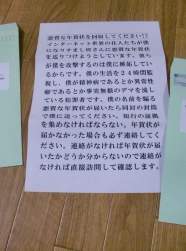 悪質な年賀状を回収してください!!
インターネット世界の住人たちが僕
になりすまし皆さんに悪質な年賀状
を送りつけようとしています。彼ら
が僕を攻撃するのは僕に嫉妬してい
るからです。僕の生活を24時間監
視し、僕が精神病であるとか異常性
癖であるとか事実無根のデマを流し
ている犯罪者です。僕の名前を騙る
悪質な年賀状が届いたら同封の封筒
で僕に送ってください。犯行の証拠
を集めなければならない。年賀状が
届かなかった場合も必ず連絡してく
ださい。連絡がなければ年賀状が届
いたかどうか分からないので連絡が
なければ直接訪問して確認します。